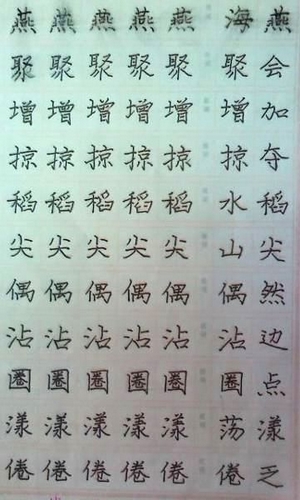 燕燕燕燕燕海燕
聚聚聚聚聚聚会
增增增增增增加
掠掠掠掠掠掠夺
稻稻稻稻稻水稻
尖尖尖尖尖山尖
偶偶偶偶偶偶然
沾沾沾沾沾沾边
圈圈圈圈圈圈点
漾漾漾漾漾荡漾
倦倦倦倦倦倦乏